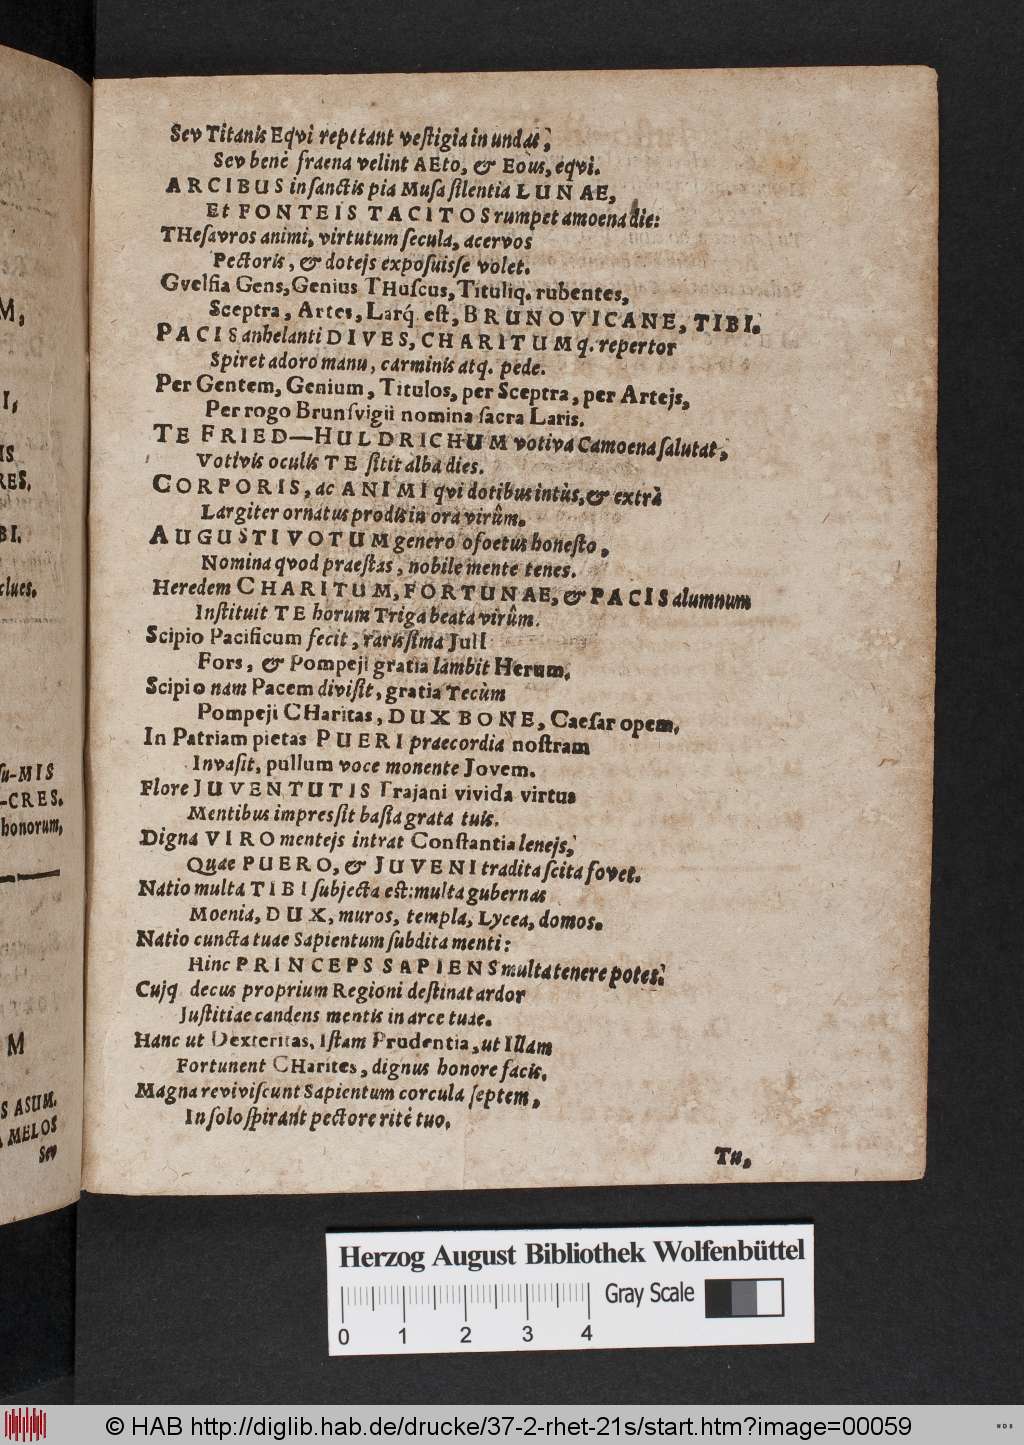 M,
I,
IS
RES.
BI.
clues.
su-MIS
-CRES.
honorum,
M
S ASUM.
MELOS
Sev
Sev Titanis Eqvi repetant vestigia in undas;
Sev benè fraena velint AEto, & Eous, eqvi.
ARCIBUS in sanctis pia Musa silentia LUNAE,
Et FONTEIS TACITOS rumpet amoena die:
THesavros animi, virtutum secula, acervos
Pectoris, & dotejs exposuisse volet.
Gvelfia Gens, Genius THuscus, Tituliq. rubentes,
Sceptra, Artes, Larq́ est, BRUNOVICANE, TIBI.
PACIS anhelanti DIVES, CHARITUM q. repertor
Spiret adoro manu, carminis atq. pede.
Per Gentem, Genium, Titulos, per Sceptra, per Artejs,
Per rogo Brunsvigii nomina sacra Laris.
TE FRIED—HULDRICHUM votiva Camoena salutat,
Votivis oculis TE sitit alba dies.
CORPORIS, ac ANIMI qvi dotibus intùs, & extrà
Largiter ornatus prodis in ora virûm.
AUGUSTI VOTUM genero ò foetus honesto,
Nomina qvod praestas, nobile mente tenes.
Heredem CHARITUM, FORTUNAE, & PACIS alumnum
Instituit TE horum Triga beata virûm.
Scipio Pacificum fecit, rarissima Julî
Fors, & Pompeji gratia lambit Herum.
Scipio nam Pacem divisit, gratia Tecùm
Pompeji CHaritas, DUX BONE, Caesar opem.
In Patriam pietas PUERI praecordia nostram
Invasit, pullum voce monente Jovem.
Flore JUVENTUTIS Trajani vivida virtus
Mentibus impressit basia grata tuis.
Digna VIRO mentejs intrat Constantia lenejs,
Quae PUERO, & JUVENI tradita scita fovet.
Natio multa TIBI subjecta est: multa gubernas
Moenia, DUX, muros, templa, Lycea, domos.
Natio cuncta tuae Sapientum subdita menti:
Hinc PRINCEPS SAPIENS multa tenere potes.
Cujq decus proprium Regioni destinat ardor
Justitiae candens mentis in arce tuae.
Hanc ut Dexteritas, Istam Prudentia, ut Illam
Fortunent CHarites, dignus honore facis.
Magna reviviscunt Sapientum corcula septem,
In solo spirant pectore ritè tuo.
Tu,
Herzog August Bibliothek Wolfenbüttel
Gray Scale
0 1 2 3 4
© HAB http://diglib.hab.de/drucke/37-2-rhet-21s/start.htm?image=00059